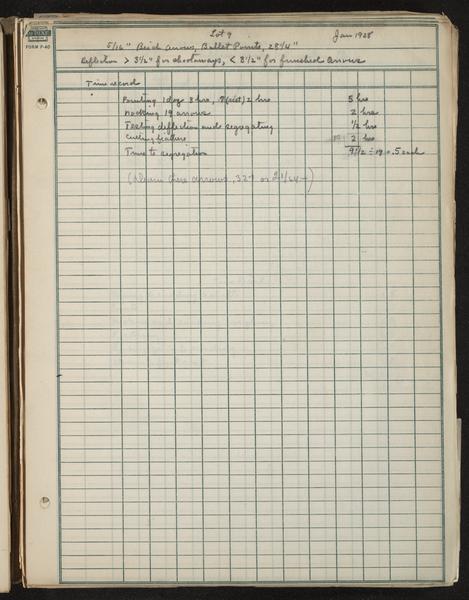 FORM P-40
Lot 9 Jan 1928
5/16" Birch arrows, Bullet Points, 28 1/4"
Deflection > 3 1/2" for shootaways, < 8 1/2" for finished arrows
Time record
Pointing 1 doz 3 hrs, 7 (rest) 2 hrs 5 hrs
Nocking 19 arrows 2 hrs
Testing deflection and segregating 1/2 hr
2 hrs
Time to segregation 9 1/2 ÷ 19 = .5 each
these arrows .327 or 21/64